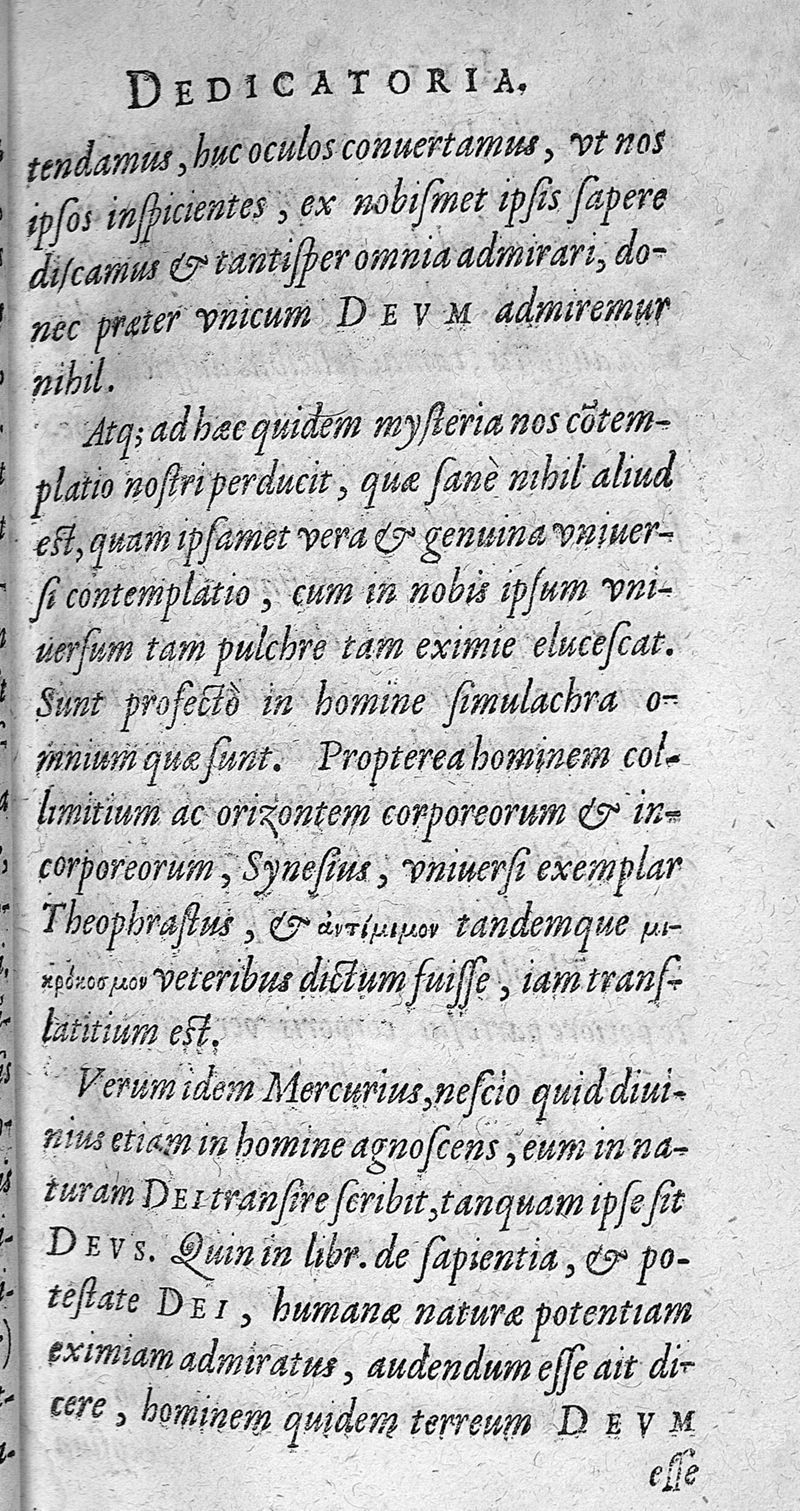 DEDICATORIA.
tendamus, huc oculos conuertamus, vt nos
ipſos inſpicientes, ex nobiſmet ipſis ſapere
diſcamus & tantiſper omnia admirari, do-
nec præter vnicum DEVM admiremur
nihil.
Atq; ad hæc quidem myſteria nos cõtem-
platio noſtri perducit, quæ ſanè nihil aliud
eſt, quam ipſamet vera & genuina vniuer-
ſi contemplatio, cum in nobis ipſum vni-
uerſum tam pulchrè tam eximie eluceſcat.
Sunt profectò in homine ſimulachra o-
mnium quæ ſunt. Propterea hominem col-
limitium ac orizontem corporeorum & in-
corporeorum, Syneſius, vniuerſi exemplar
Theophraſtus, & ἀντίμιμον tandemque μι-
κρόκοσμον veteribus dictum fuiſſe, iam tranſ-
latitium eſt.
Verum idem Mercurius, neſcio quid diui-
nius etiam in homine agnoſcens, eum in na-
turam DEI tranſire ſcribit, tanquam ipſe ſit
DEVS. Quin in libr. de ſapientia, & po-
teſtate DEI, humanæ naturæ potentiam
eximiam admiratus, audendum eſſe ait di-
cere, hominem quidem terreum DEVM
eſſe